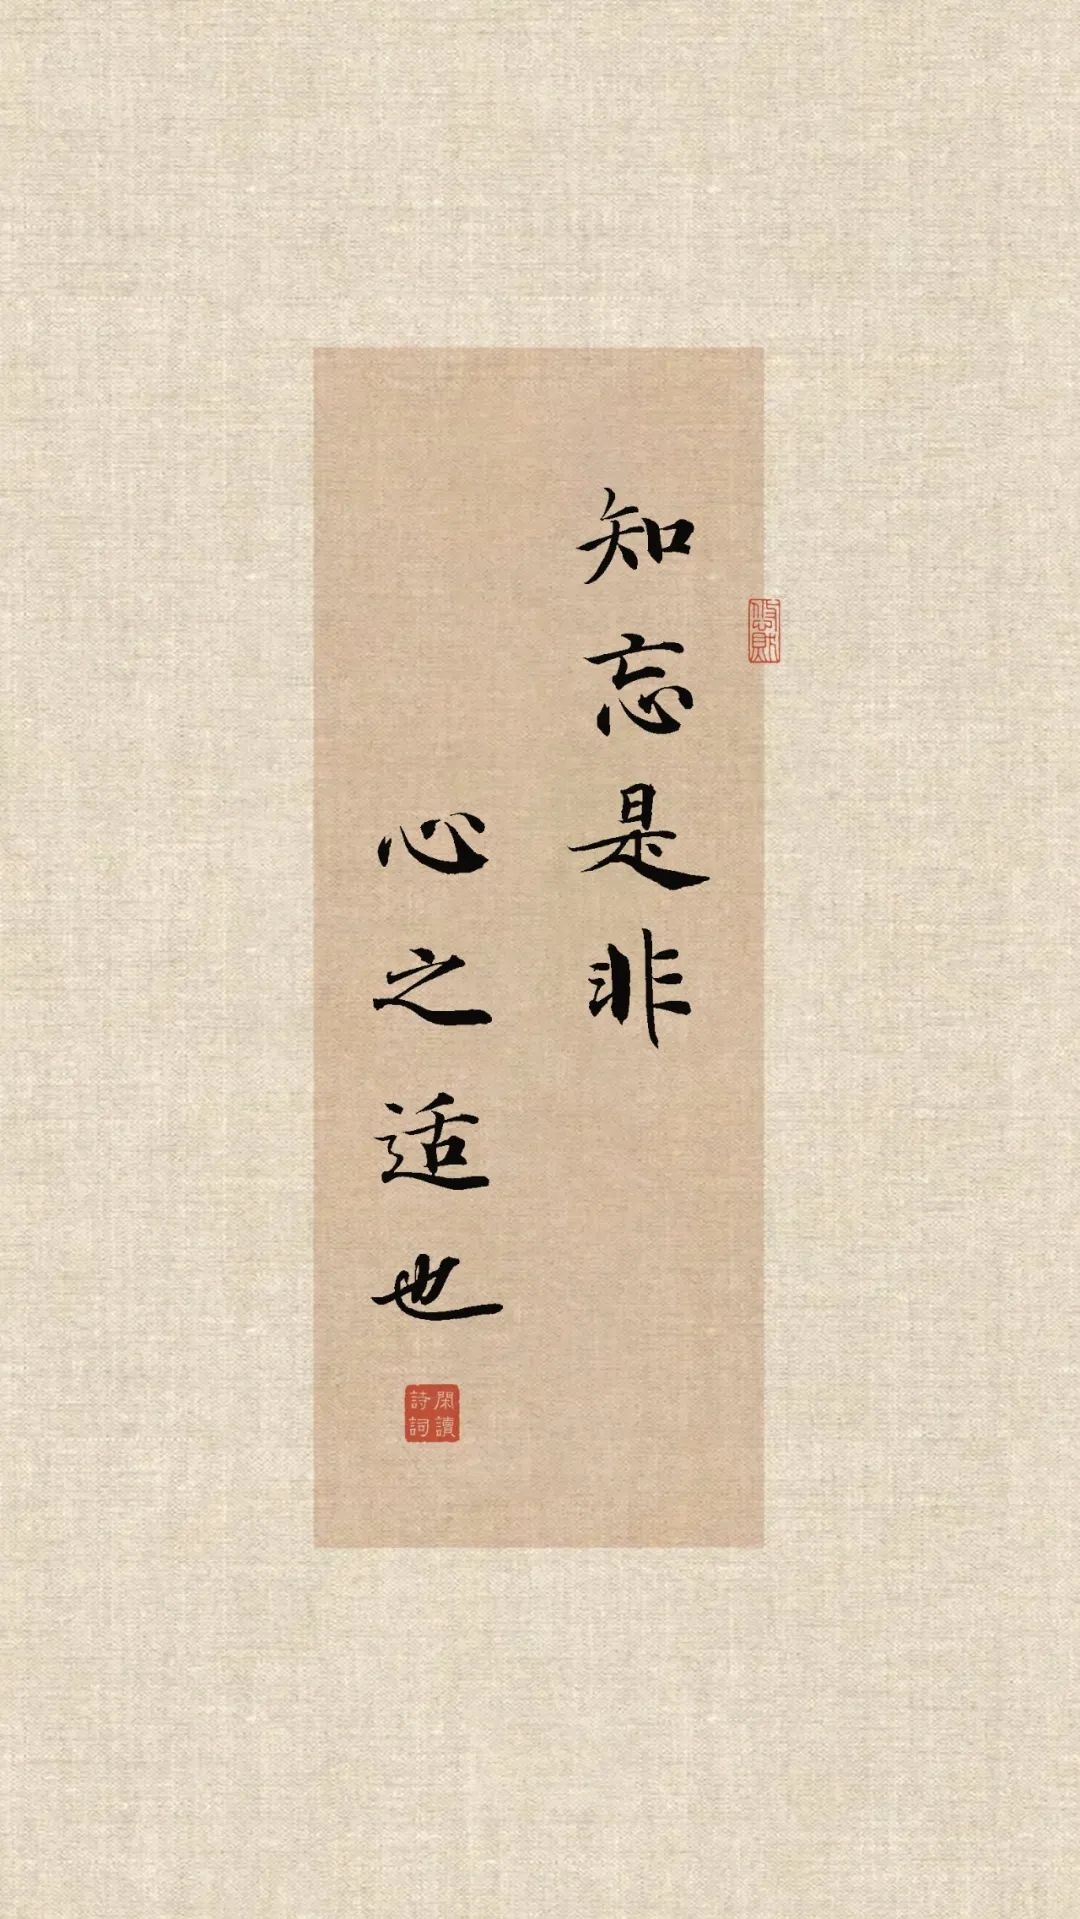 知忘是非
心之适也
閑讀
詩詞